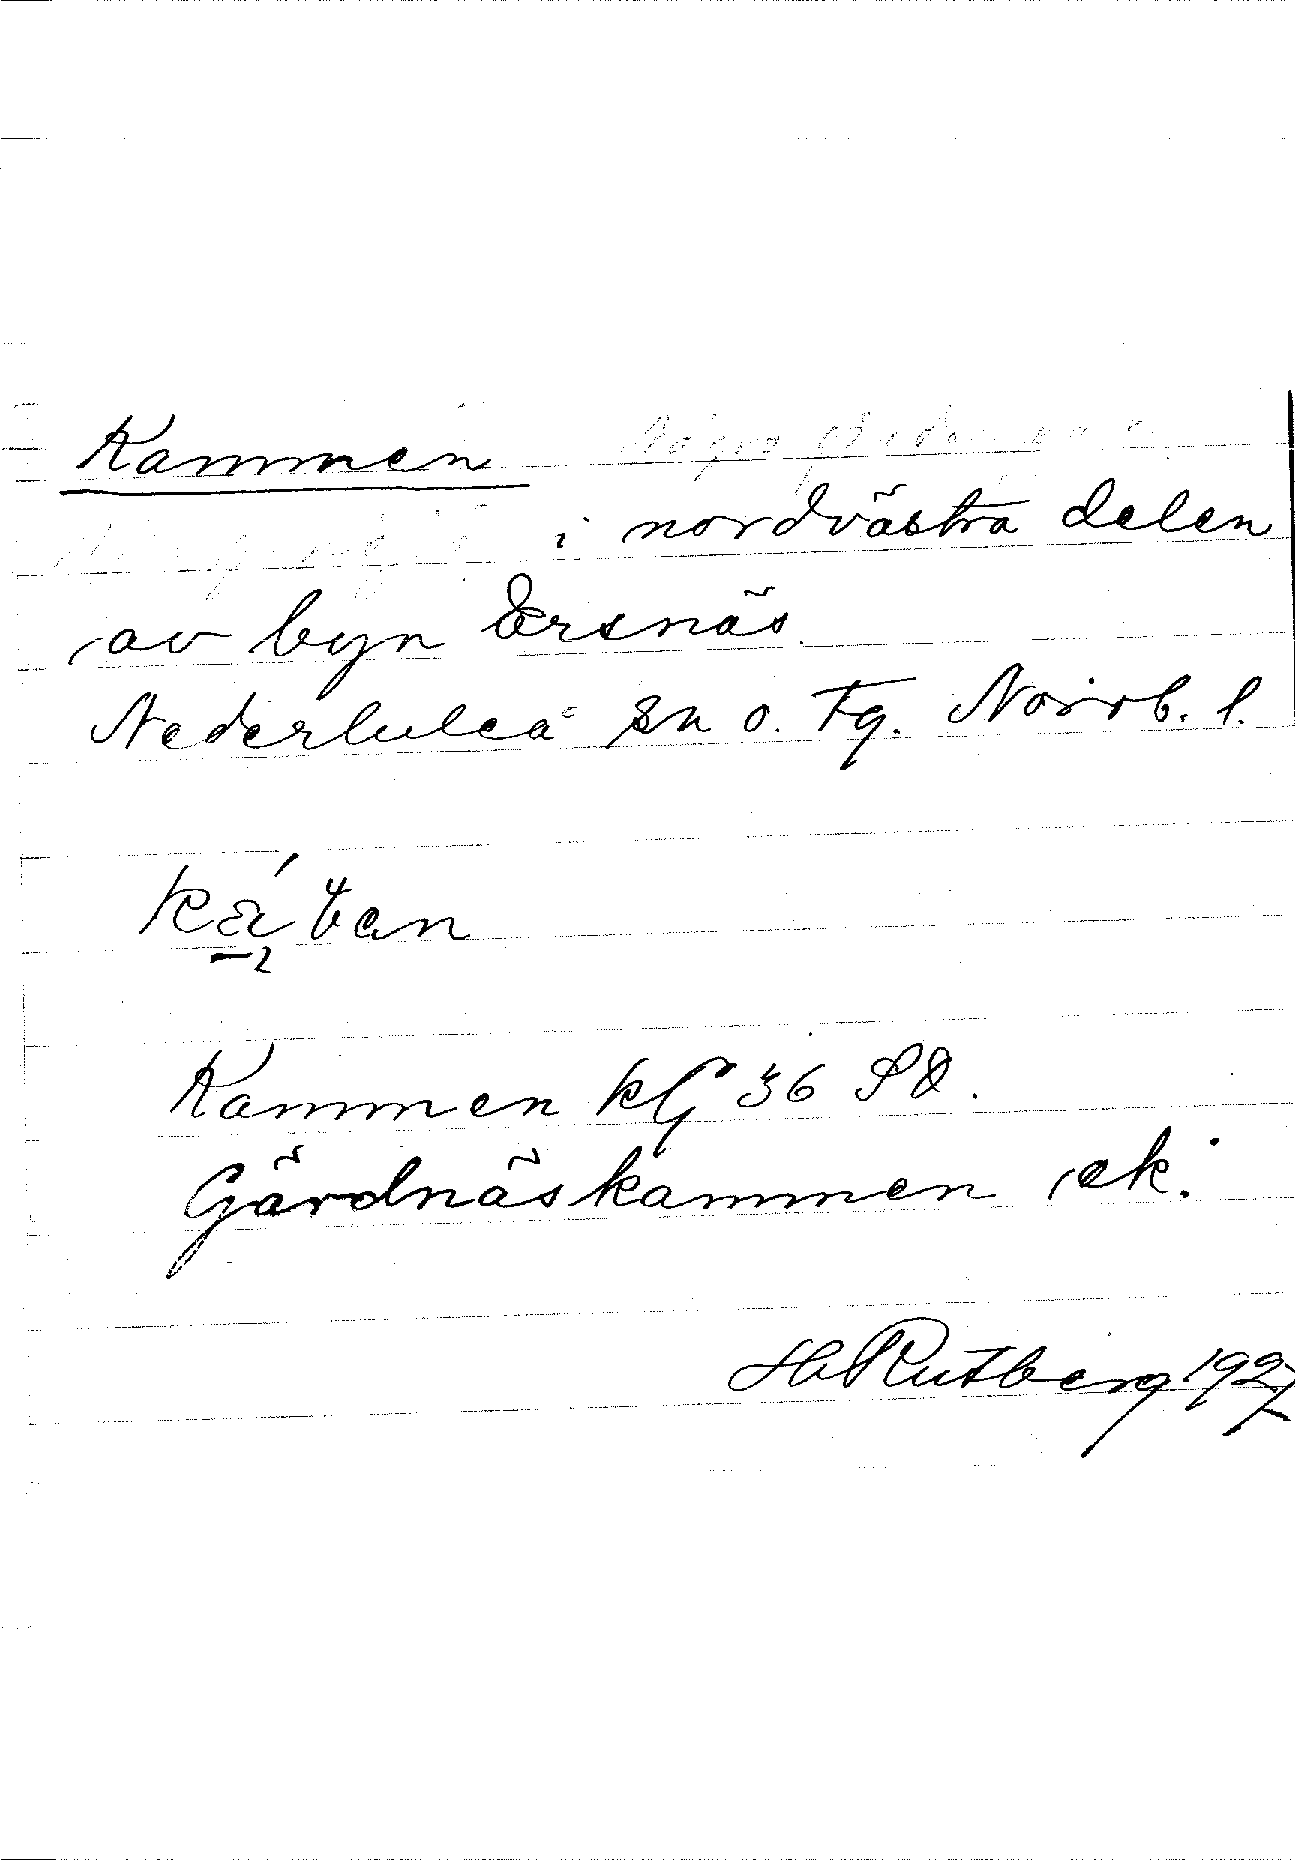 Kammen
i nordvästra delen
av byn Ersnäs.
Nederluleå sn o. tg. Norrb. l.
Kammen kG 36 SO.
Gärdnäskammen, ek.
H. Rutberg 1927